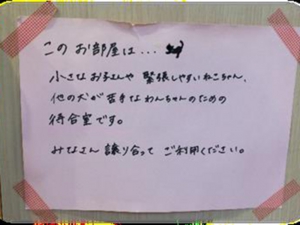 このお部屋は...
小さなお子さんや緊張しやすいねこちゃん、
他の犬が苦手なわんちゃんのための
待合室です。
みなさん譲り合ってご利用ください。